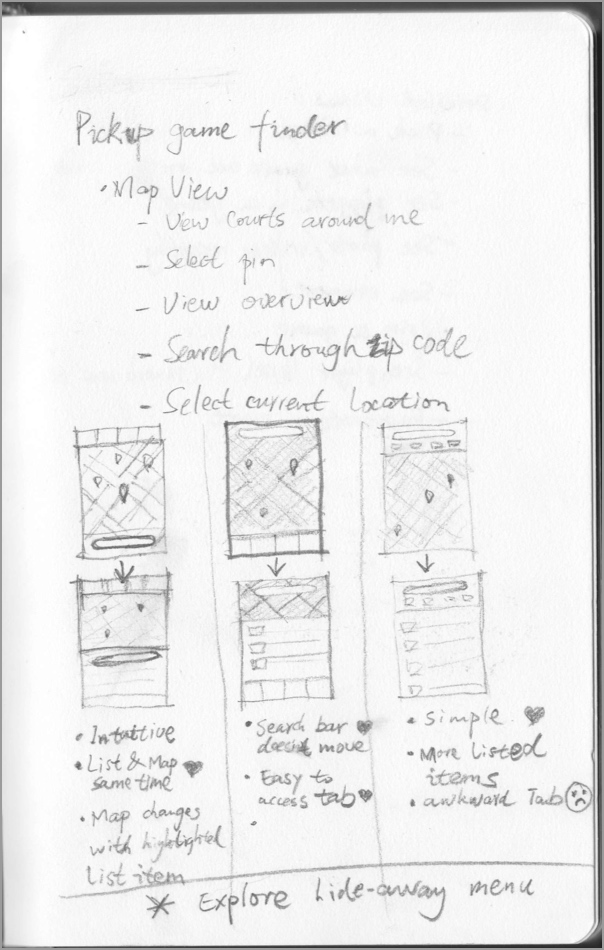 Pickup game finder
• Map View
- View Courts around me
- Select pin
- View overview
- Search through zip code
- Select current location
• Intuitive
• List & Map
same time
• Map changes
with highlighted
List item
• Search bar
doesn't move
• Easy to
access tab
•
• Simple
• More Listed
items
• awkward Tab
* Explore hide-away menu